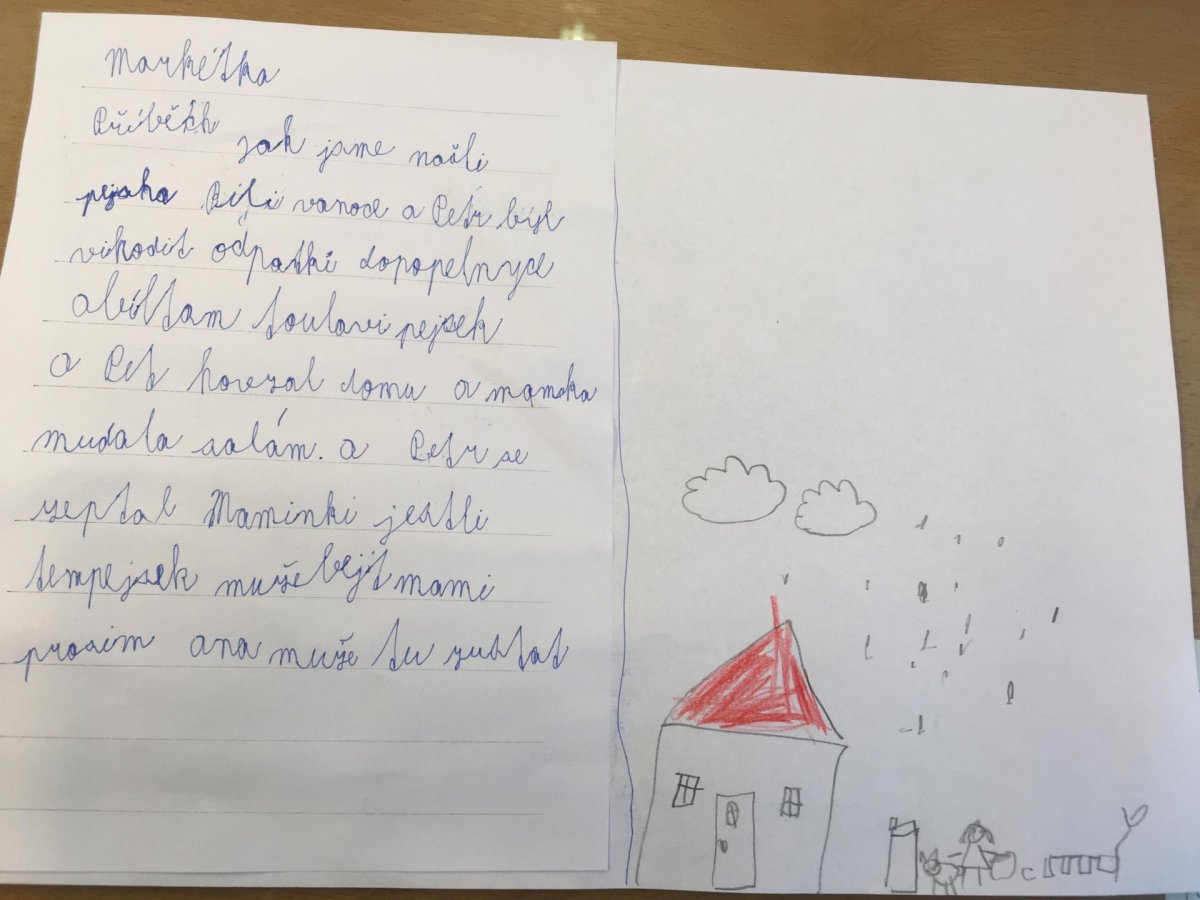 Markétka
Příběch jak jsme našli
pejska Bili vanoce a Petr bísl
vihodit odpatki dopopelnyce
abíltam toulavi pejsek
a Pet hovzal domu a mamka
mudala salám. a Petr se
zeptal Maminki jestli
tempejsek muže bejt mami
prosim ana muže tu zustat